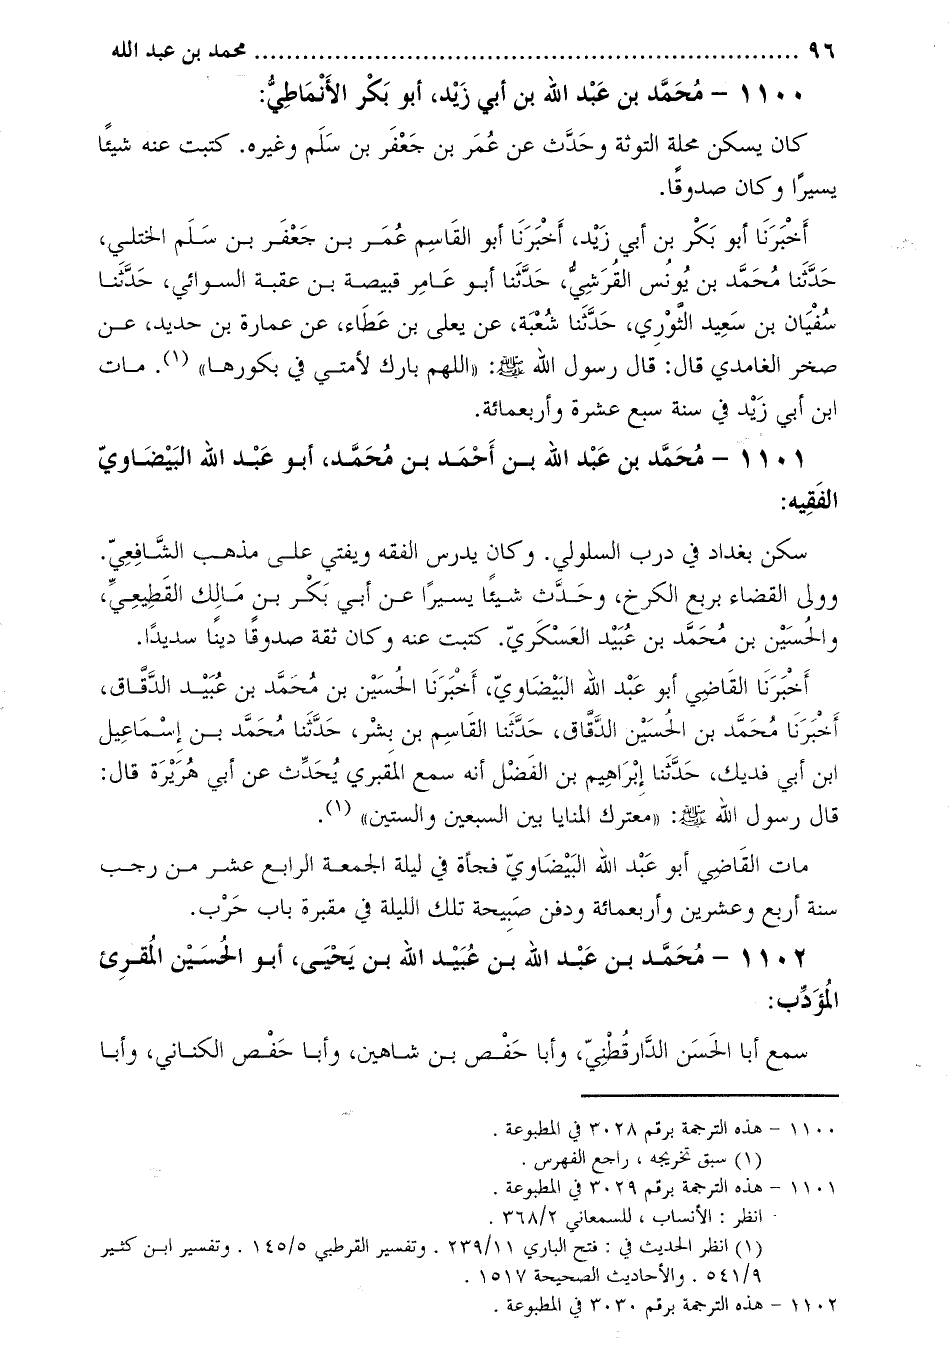 ٩٦ .................................................................... محمد بن عبد الله
١١٠٠ – مُحَمَّد بن عَبْد الله بن أبي زَيْد، أبو بَكْر الأَنْمَاطِيُّ:
كان يسكن محلة التوثة وحَدَّث عن عُمَر بن جَعْفَر بن سَلَم وغيره. كتبت عنه شيئًا
يسيرًا وكان صدوقًا.
أَخْبَرَنَا أبو بَكْر بن أبي زَيْد، أَخْبَرَنَا أبو القَاسِم عُمَر بن جَعْفَر بن سَلَم الختلي،
حَدَّثَنَا مُحَمَّد بن يُونُس القُرَشِيُّ، حَدَّثَنَا أبو عَامِر قبيصة بن عقبة السوائي، حَدَّثَنَا
سُفْيَان بن سَعِيد الثَّوْرِي، حَدَّثَنَا شُعْبَة، عن يعلى بن عَطَاء، عن عمارة بن حديد، عن
صخر الغامدي قال: قال رسول الله ﷺ: «اللهم بارك لأمتي في بكورها» (١). مات
ابن أبي زَيْد في سنة سبع عشرة وأربعمائة.
١١٠١ – مُحَمَّد بن عَبْد الله بن أَحْمَد بن مُحَمَّد، أبو عَبْد الله البَيْضَاويّ
الفَقِيه:
سكن بغداد في درب السلولي. وكان يدرس الفقه ويفتي على مذهب الشَّافِعِيّ.
وولى القضاء بربع الكرخ، وحَدَّث شيئًا يسيرًا عن أبي بَكْر بن مَالِك القَطِيعِيِّ،
والحُسَيْن بن مُحَمَّد بن عُبَيْد العَسْكَرِيّ. كتبت عنه وكان ثقة صدوقًا دينًا سديدًا.
أَخْبَرَنَا القَاضِي أبو عَبْد الله البَيْضَاوِيّ، أَخْبَرَنَا الحُسَيْن بن مُحَمَّد بن عُبَيْد الدَّقَّاق،
أَخْبَرَنَا مُحَمَّد بن الحُسَيْن الدَّقَّاق، حَدَّثَنَا القَاسِم بن بِشْر، حَدَّثَنَا مُحَمَّد بن إِسْمَاعِيل
ابن أبي فديك، حَدَّثَنَا إِبْرَاهِيم بن الفَضْل أنه سمع المقبري يُحَدِّث عن أبي هُرَيْرَة قال:
قال رسول الله ﷺ: «معترك المنايا بين السبعين والستين» (١).
مات القَاضِي أبو عَبْد الله البَيْضَاوِيّ فجأة في ليلة الجمعة الرابع عشر من رجب
سنة أربع وعشرين وأربعمائة ودفن صَبِيحة تلك الليلة في مقبرة باب حَرْب.
١١٠٢ – مُحَمَّد بن عَبْد الله بن عُبَيْد الله بن يَحْيَى، أبو الحُسَيْن المُقرِئ
المُؤَدِّب:
سمع أبا الحَسَن الدَّارقُطْنِيّ، وأبا حَفْص بن شاهين، وأبا حَفْص الكناني، وأبا
١١٠٠ – هذه الترجمة برقم ٣٠٢٨ في المطبوعة .
(١) سبق تخريجه ، راجع الفهرس .
١١٠١ – هذه الترجمة برقم ٣٠٢٩ في المطبوعة .
انظر : الأنساب ، للسمعاني ٣٦٨/٢ .
(١) انظر الحديث في : فتح الباري ٢٣٩/١١ . وتفسير القرطبي ١٤٥/٥ . وتفسير ابن كثير
٥٤١/٩ . والأحاديث الصحيحة ١٥١٧ .
١١٠٢ – هذه الترجمة برقم ٣٠٣٠ في المطبوعة .